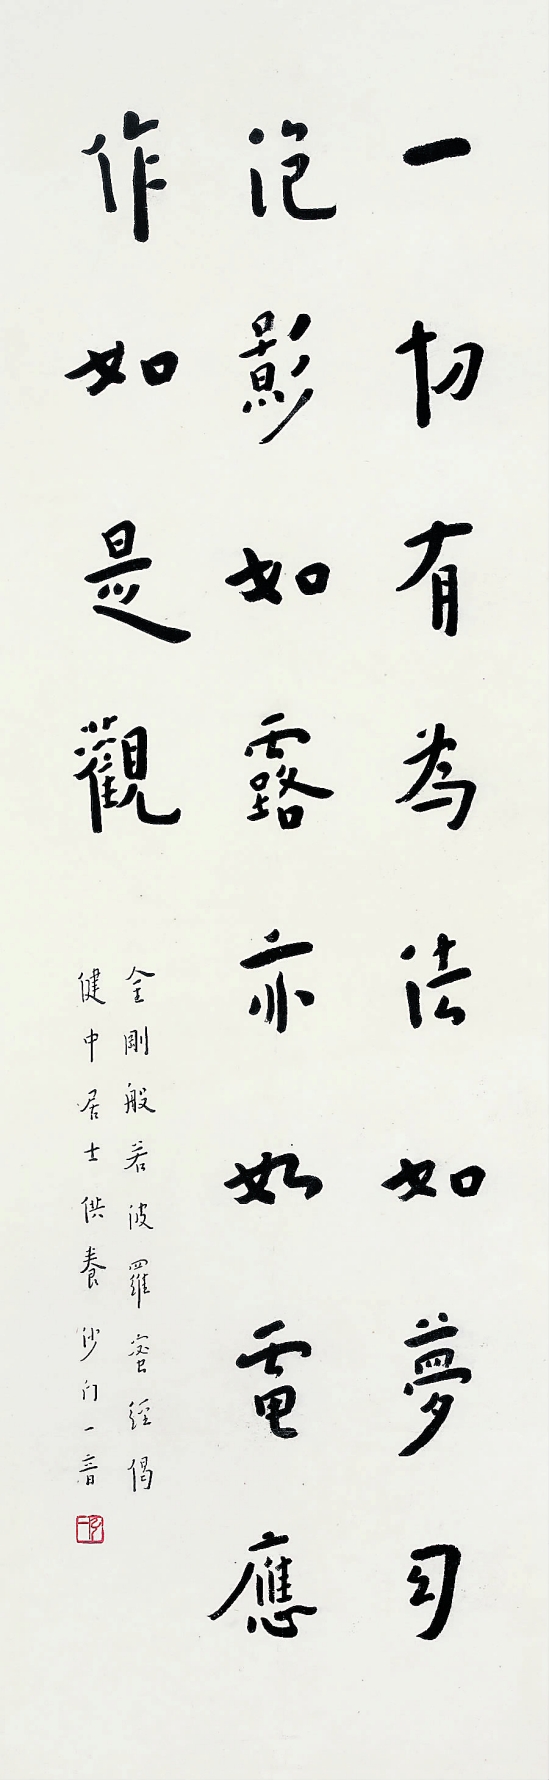 一切有為法如夢幻
泡影如露亦如電應
作如是觀
金剛般若波羅蜜經偈
健中居士供養沙門一音